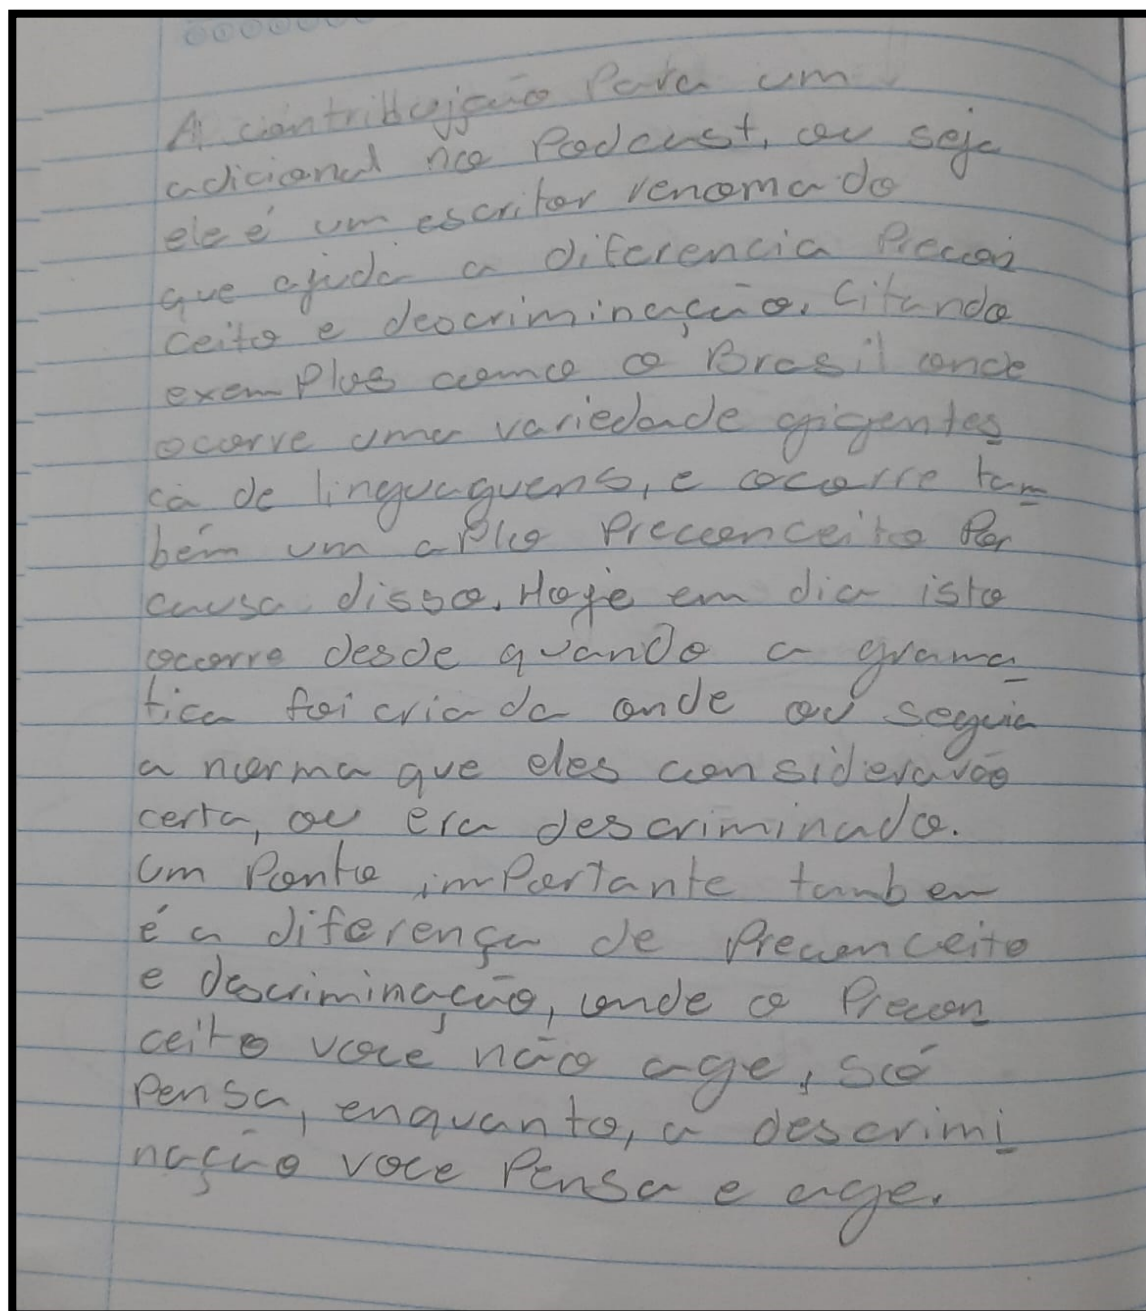 A contribuição Para um
adicional no Podcast, ou seja
ele é um escritor renomado
que ajuda a diferencia Precon
ceito e descriminação. Citando
exemPlos como o Brasil onde
ocorre uma variedade gigentes
ca de linguaguens, e ocorre tam
bém um aPlio Preconceito Por
causa disso. Hoje em dia isto
ocorre desde quando a grama
tica foi criada onde ou seguia
a norma que eles consideravão
certa, ou era descriminado.
Um Ponto imPortante tambem
é a diferença de Preconceito
e descriminação, onde o Precon
ceito você não age, só
Pensa, enquanto, a descrimi
nação voce Pensa e age.